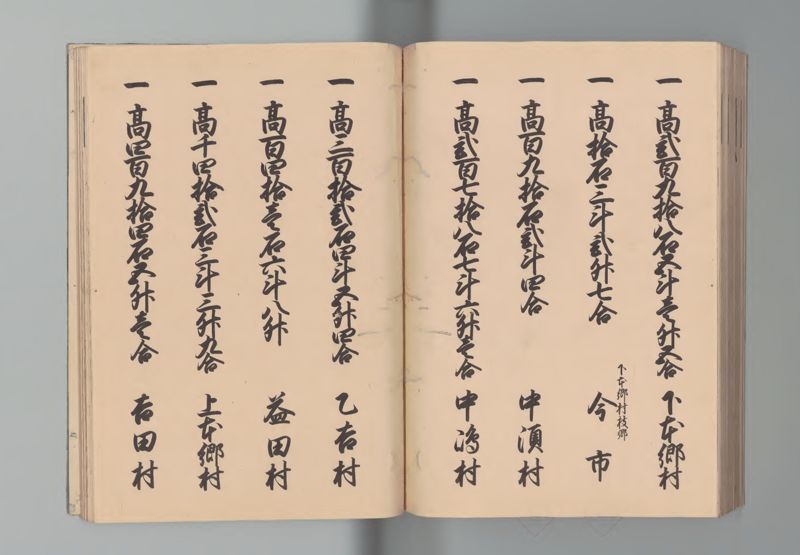 一 高弐百九拾八石五斗壱升五合 下本郷村
下本郷村枝郷
一 高拾石三斗弐升七合 今市
一 高百九拾石弐斗四合 中須村
一 高弐百七拾八石七斗六升壱合 中嶋村
一 高三百拾弐石四斗五升四合 乙吉村
一 高百四拾壱石六斗八升 益田村
一 高千四拾弐石三斗三升九合 上本郷村
一 高四百九拾四石五升壱合 吉田村